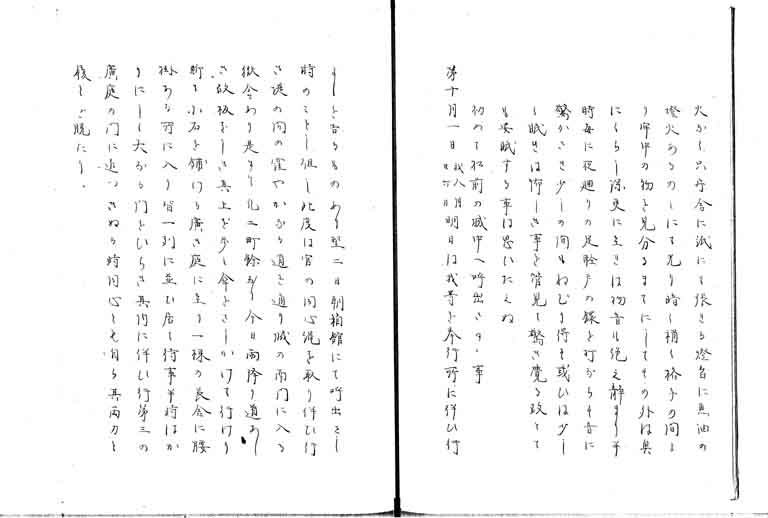 火なく只舟合に泯にて張きる燈台に魚油の
燈火あるのミにて光り時々稍く格子の間よ
り牢中の物を見分るまてにしてその外は真
にくらし深更に至きは物音も絶え静まり半
時毎に夜廻りの足音戸の鎖を打ならす音に
驚かされ少しの間もねむり得す或ひは少し
く眠きは怖しき事を管見て驚き覚る故とて
も安眠する事は思いたえぬ
初めて松前の城中へ呼出さるゝ事
第十月一日我八月廿六日明日は我等を奉行所に伴ひ行
よしを告るものあり翌二日朝箱館にて呼出さし
時のことし但し此度は官の同心縄を取り伴ひ行
き堤の間の窪やかなる道を通り城の両門に入る
獄舎より是まて凡二町餘あり今日雨降り道あし
き故板をしき其上を歩く傘をさしかけて行けり
斯て小石を鋪ける廣き庭に至り一様の長舎に腰
掛ある所に入り皆一列に並ひ居て待事半時はか
りにして大なる門をひらき其内に伴ひ行第三の
廣庭の門に近つきぬる時同心も先自ら其両刀を
後しへ脱たり。